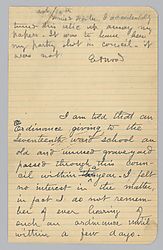 turns this relic up among my
papers. It was to learn how
my party shot in council. It
was not.
I am told that an
Ordinance giving to the
seventeenth ward school an
old and unused graveyard
passed through this Coun-
cil within year. I felt
no interest in the matter
in fact I do not remem-
ber of ever hearing
such an ordinance until
within a few days.